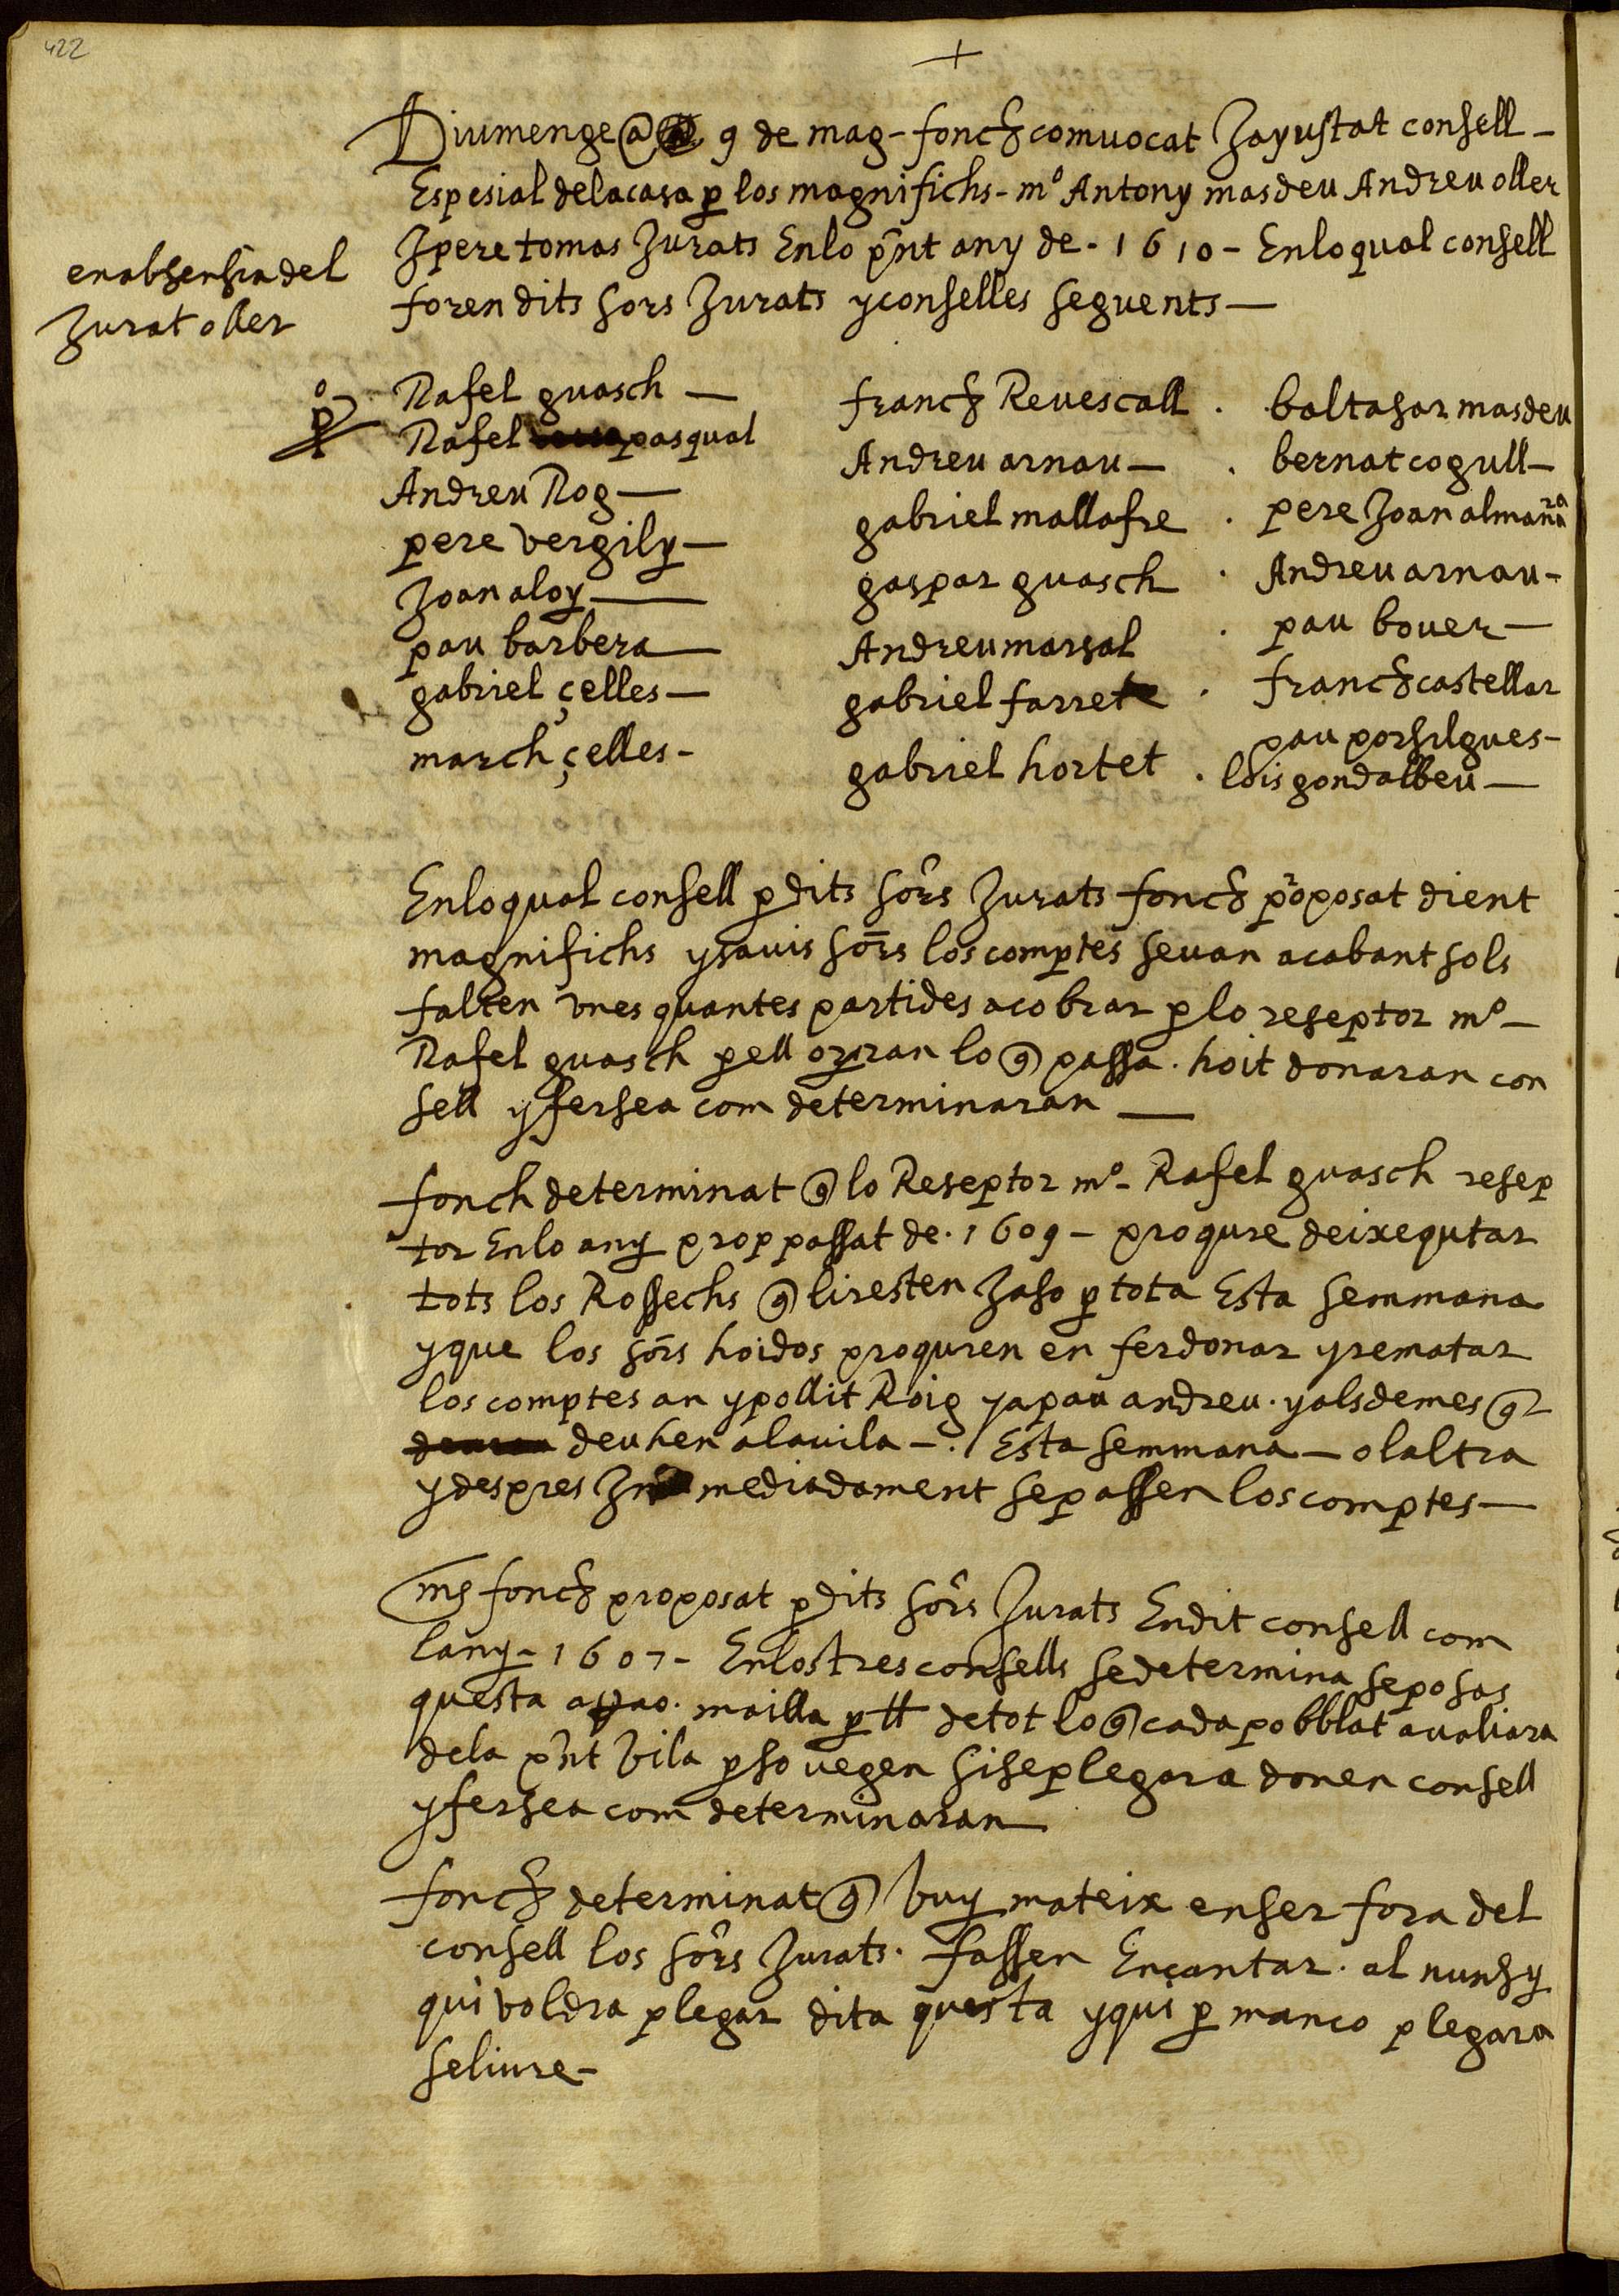 422
+
Diumenge a 9 de mag - fonch comuocat Jayustat consell -
Espesial delacasa p los magnifichs - mº Antony masdeu Andreu oller
Jpere tomas Jurats Enlo pnt any de - 1610 - Enloqual consell
foren dits sors Jurats yconselles seguents —
enabsensia del
Jurat oller
Rafel guasch —
Rafel pasqual
Andreu Rog —
pere vergily —
Joan aloy —
pau barbera —
gabriel çelles —
march çelles -
franch Reuescall
Andreu arnau —
gabriel mallafre
gaspar guasch
Andreu marsal
gabriel farrete
gabriel hortet
. baltasar masdeu
. bernat cogull —
. pere Joan almanara
. Andreu arnau -
. pau bouer —
. franch castellar
pau porsilgues -
. lois gondalbeu —
Enloqual consell p dits sors Jurats fonch proposat dient
magnifichs ysauis sors los comptes seuan acabant sols
falten vnes quantes partides acobrar p lo reseptor mº —
Rafel guasch pell oyran lo q passa . hoit donaran con
sell yfersea com determinaran —
fonch determinat q lo Reseptor mº - Rafel guasch resep
tor Enlo any prop passat de . 1609 - proqure deixequtar
tots los Rossechs q liresten Jaso p tota Esta semmana
yque los sors hoidos proquren en ferdonar yrematar
los comptes an ypollit Roig yapau andreu . yalsdemes q
deuhen alauila — . Esta semmana — olaltra
ydespres Jn mediadament sepassen los comptes —
ms fonch proposat p dits sors Jurats Endit consell com
lany - 1607 - Enlostres consells sedetermina seposas
questa a mailla p ll detot lo q cada pobblat aualiara
dela pnt vila p so vegen siseplegara donen consell
yfersea com determinaran —
fonch determinat q vuy mateix enser fora del
consell los sors Jurats . fassen Ençantar . al nunsy
qui voldra plegar dita questa yqui p manco plegara
seliure -